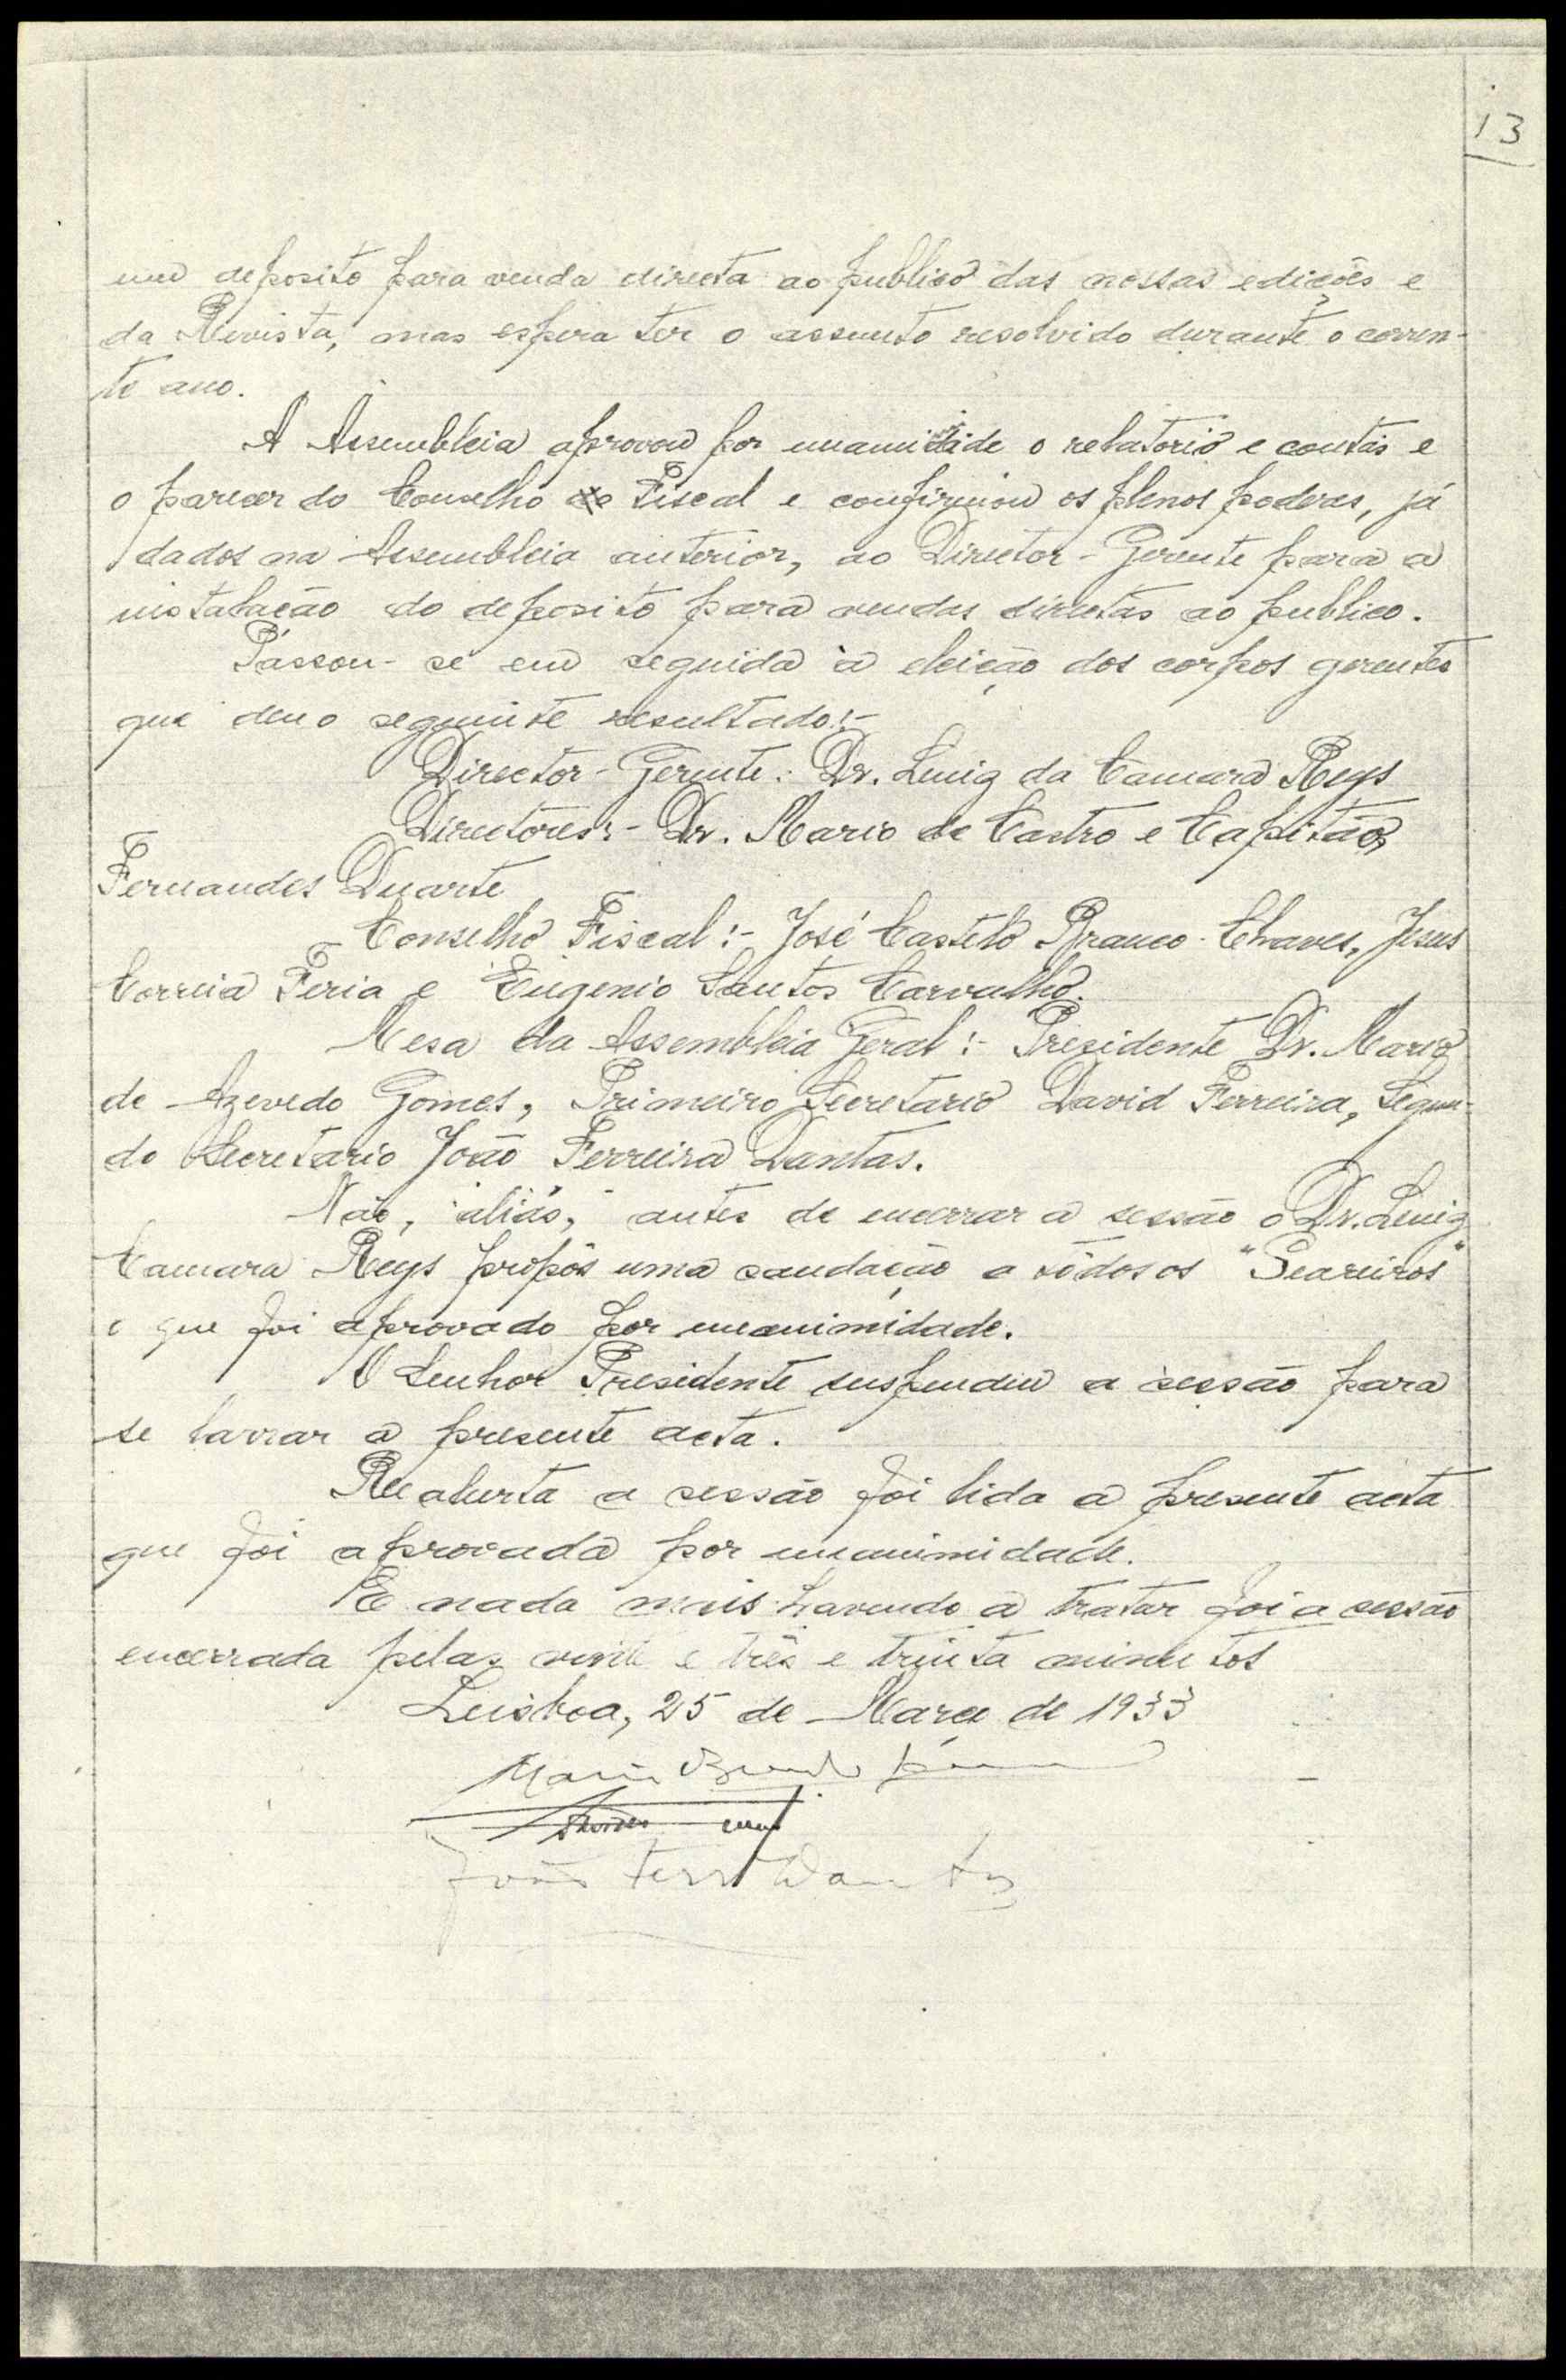 13
um deposito para venda directa ao publico das nossas edições e
da Revista, mas espera ter o assunto resolvido durante o corren-
te ano.
A Assembleia aprovou por unamidade o relatorio e contas e
o parecer do Conselho Fiscal e confirmou os plenos poderes, já
dados na Assembleia anterior, ao Director-Gerente para a
instalação do deposito para vendas directas ao publico.
Passou-se em seguida à eleição dos corpos gerentes
que deu o seguinte resultado:-
Director-Gerente: Dr. Luiz da Camara Reys
Directores:- Dr. Mario de Castro e Capitão
Fernandes Duarte
Conselho Fiscal:- José Castelo Branco Chaves, Jesus
Correia Feria e Eugenio Santos Carvalho.
Mesa da Assembleia Geral:- Presidente Dr. Mario
de Azevedo Gomes, Primeiro Secretario David Ferreira, Segun-
do Secretario João Ferreira Dantas.
Não, aliás, antes de encerrar a sessão o Dr. Luiz
Camara Reys propôs uma saudação a tôdos os "Seareiros"
o que foi aprovado por unanimidade.
O Senhor Presidente suspendeu a sessão para
se lavrar a presente acta.
Reaberta a sessão foi lida a presente acta
que foi aprovada por unanimidade.
E nada mais havendo a tratar foi a sessão
encerrada pelas vinte e três e trinta minutos
Lisboa, 25 de Março de 1933
João Ferr Dantas